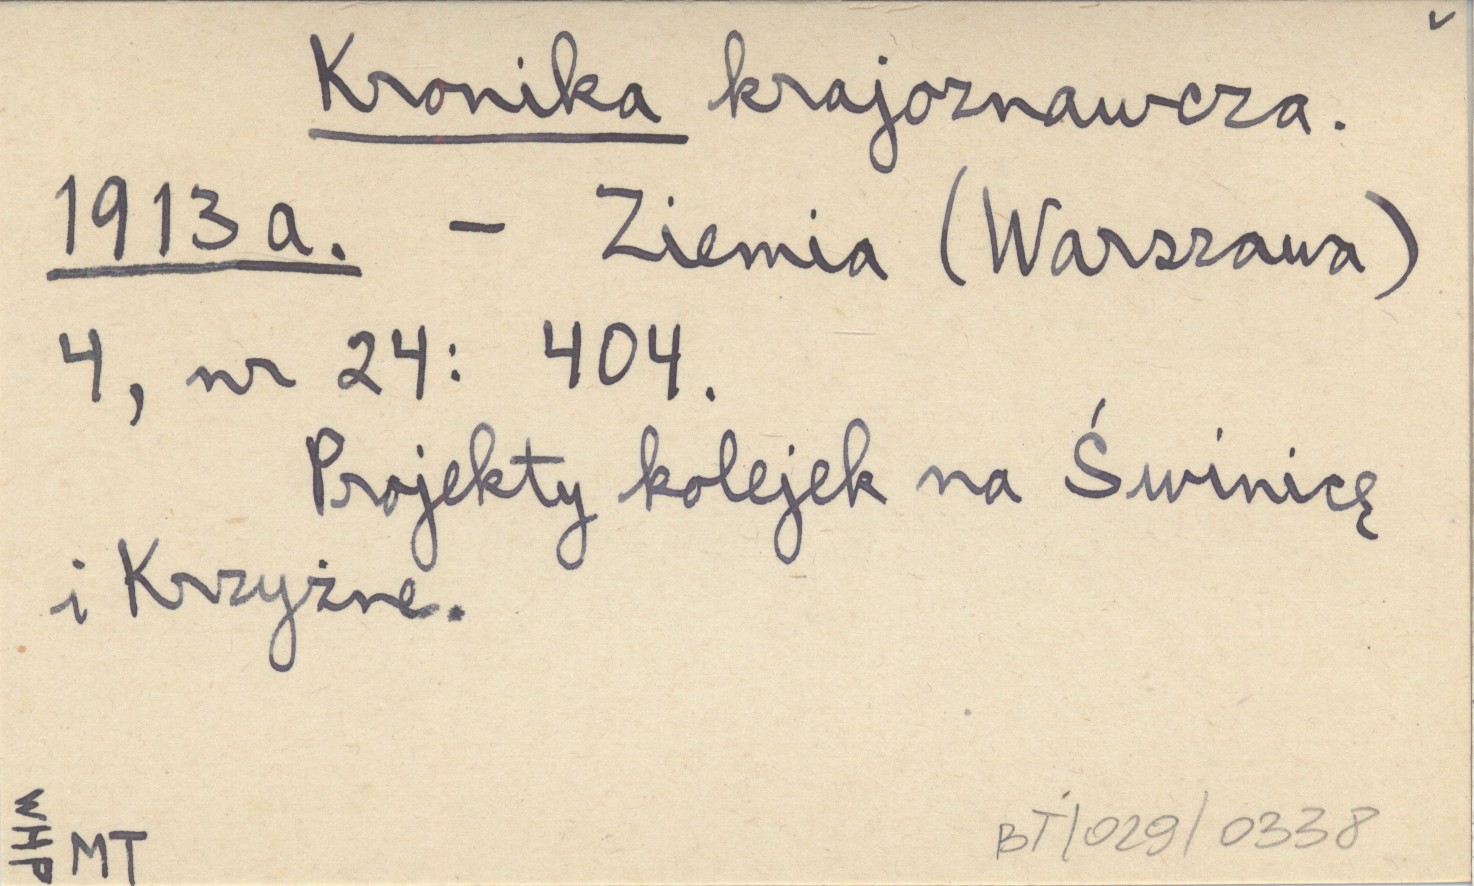 Kronika krajoznawcza.
1913 a. - Ziemia (Warszawa)
4, nr 24: 404.
Projekty kolejek na Świnicę
i Krzyżne.
WHP
MT
BT/029/0338